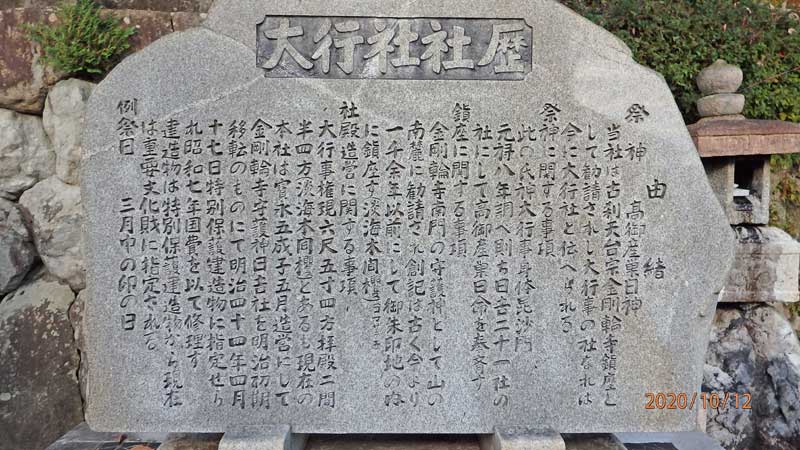 大行社社歴
由緒
祭神 高御産巣日神
当社は古刹天台宗金剛輪寺鎮座と
して勧請されし大行事の社なれは
今に大行社と伝へらる
祭神に関する事項
此の氏神大行事身体毘沙門
元禄八年調へ則ち日吉二十一社の
社にして高御産巣日命を奉斎す
鎮座に関する事項
金剛輪寺南門の守護神として山の
南麓に勧請され創記は古く今より
一千余年以前にして御朱印地の内
に鎮座す淡海木間攫
社殿造営に関する事項
大行事権現六尺五寸四方拝殿二間
半四方淡海木間攫とあるも現在の
本社は寛永五戊子五月造営にして
金剛輪寺守護神日吉社を明治初期
移転のものにて明治四十四年四月
十七日特別保護建造物に指定せら
れ昭和七年国費を以て修理す
建造物は特別保護建造物から現在
は重要文化財に指定される
例祭日 三月中の卯の日
2020/10/12